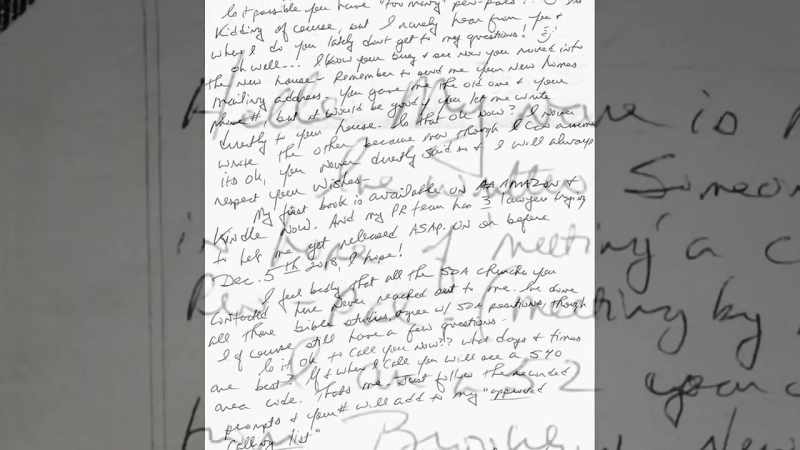 Is it possible you have "too many" pen-pals?
Kidding of course, but I rarely hear from you &
when I do you lately don't get to my questions!
oh well--- I know your busy & see now you moved into
the new house- Remember to send me your new homes
mailing address- you gave me the old one & your
phone# but it would be good if you let me write
directly to your house. Is that ok now? I never
wrote the other because even though I
its ok, you never directly said so & I will always
respect your wishes-
My first book is available on AMAZON &
Kindle Now. And my PR team has 3 lawyers trying
to help me get released ASAP. on or before
Dec. 5th 2018, I hope!
I feel badly that all the SDA churches you
contacted have never reached out to me. Ive done
all those bible studies, agree w/ SDA positions, though
I of course still have a few questions.
Is it ok to call you now?? what days & times
are best? If & when I call you will see a 570
area code. Thats me- Just follow the recorded
prompts & your # will add to my "approved
calling list"
Hello My name is
Someone
in hopes of meeting a
Pen-Pal (meeting by
I am a 52 year
from Bronx, New